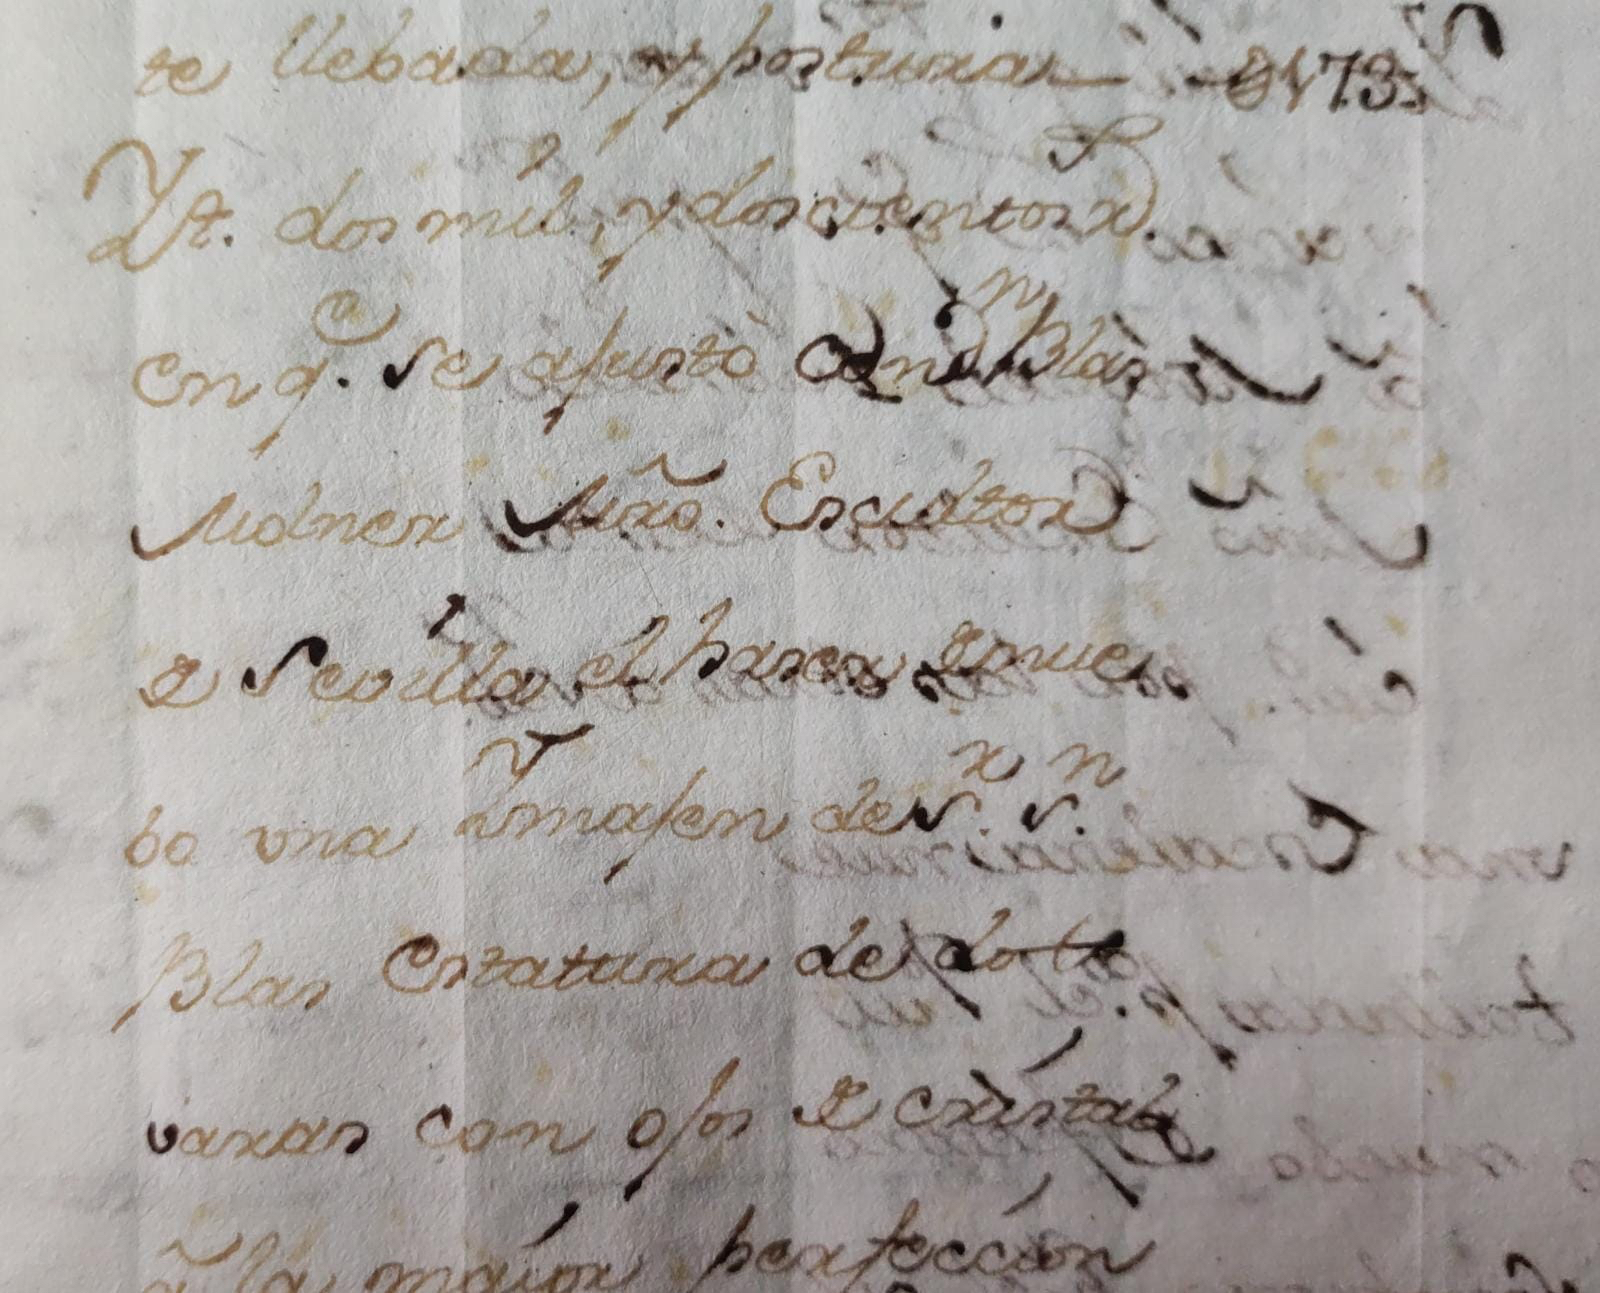 te llebada, y posturar 8173
Yt. dos mil, y doscientos rs
en q.e se ajustò con Dn Blas
Molner Mro. Escultor
de Sevilla el hacer de nue
bo vna Ymajen de Sr. Sn.
Blas Estatura de dos
varas con ojos de cristal
a la maior perfeccion